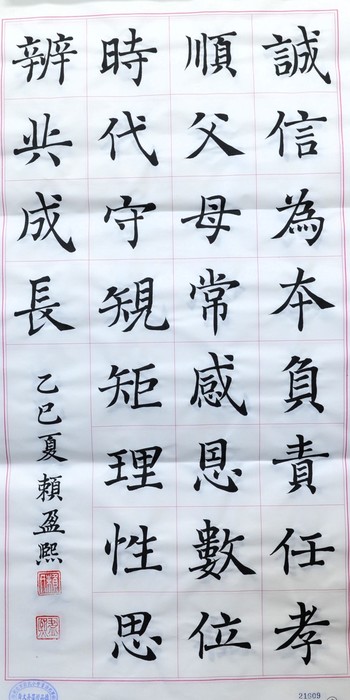 誠信為本負責任孝
順父母常感恩數位
時代守䂓矩理性思
辨共成長
乙巳夏賴盈熙
21609